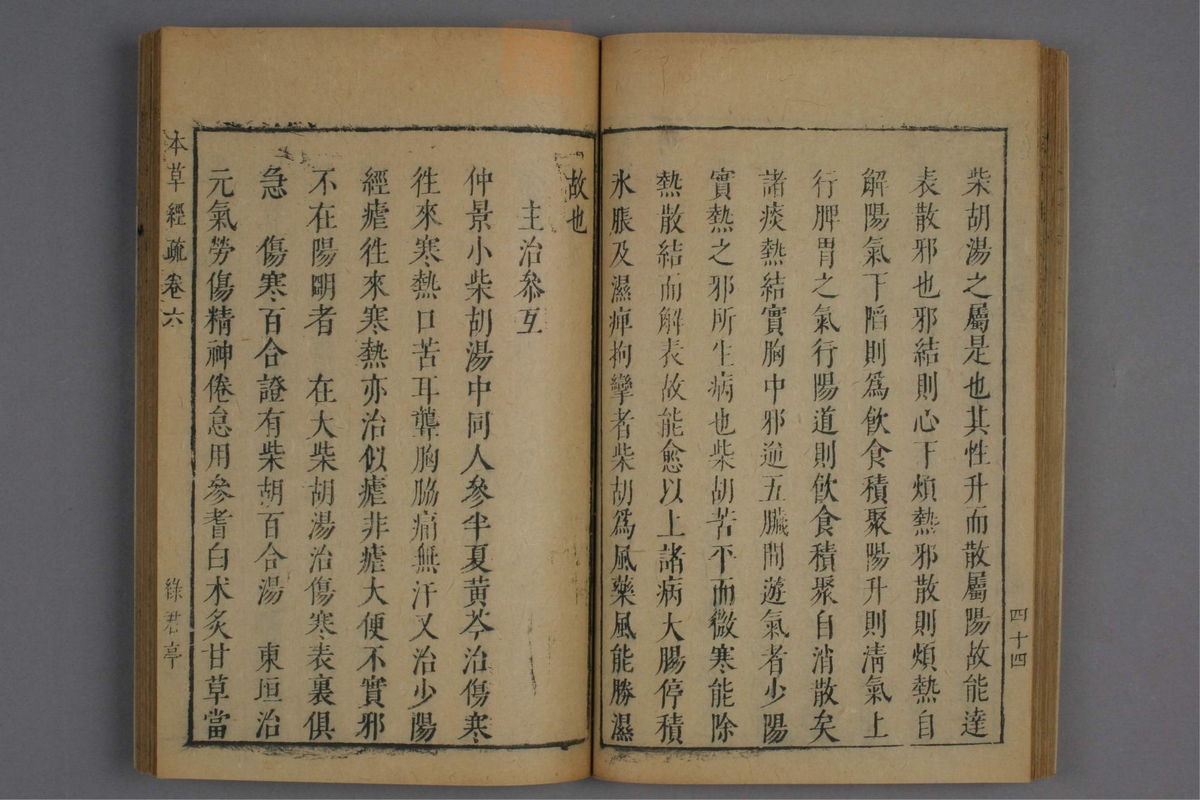 柴胡湯之屬是也其性升而散屬陽故能達
表散邪也邪結則心下煩熱邪散則煩熱自
解陽氣下陷則爲飲食積聚陽升則清氣上
行脾胃之氣行陽道則飲食積聚自消散矣
諸痰熱結實胸中邪逆五臟間遊氣者少陽
實熱之邪所生病也柴胡苦平而微寒能除
熱散結而解表故能愈以上諸病大腸停積
水脹及濕痺拘攣者柴胡爲風藥風能勝濕
四十四
故也
主治參互
仲景小柴胡湯中同人參半夏黃芩治傷寒
徃來寒熱口苦耳聾胸脇痛無汗又治少陽
經瘧徃來寒熱亦治似瘧非瘧大便不實邪
不在陽明者　在大柴胡湯治傷寒表裏俱
急　傷寒百合證有柴胡百合湯　東垣治
元氣勞傷精神倦怠用參耆白术炙甘草當
本草經疏卷六
綠君亭